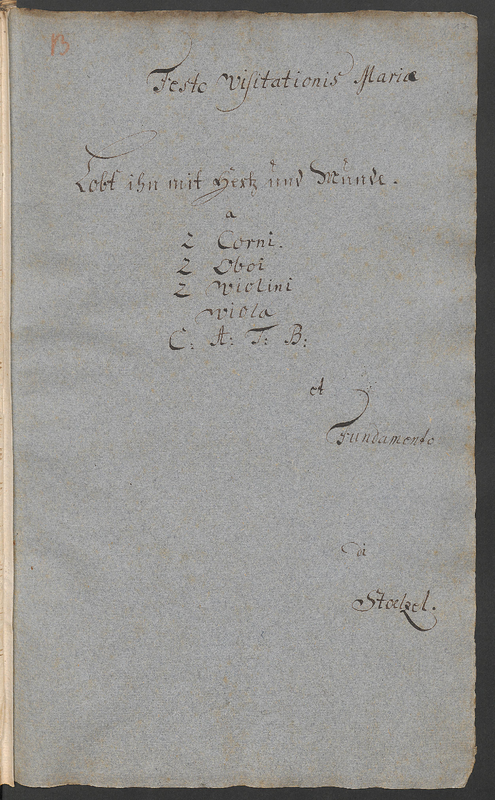 13
Festo Visitationis Mariæ
Lobt ihn mit Hertz und Munde.
a
2 Corni.
2 Oboi
2 Violini
Viola
C: A: T: B:
et
Fundamento
di
Stoelzel.